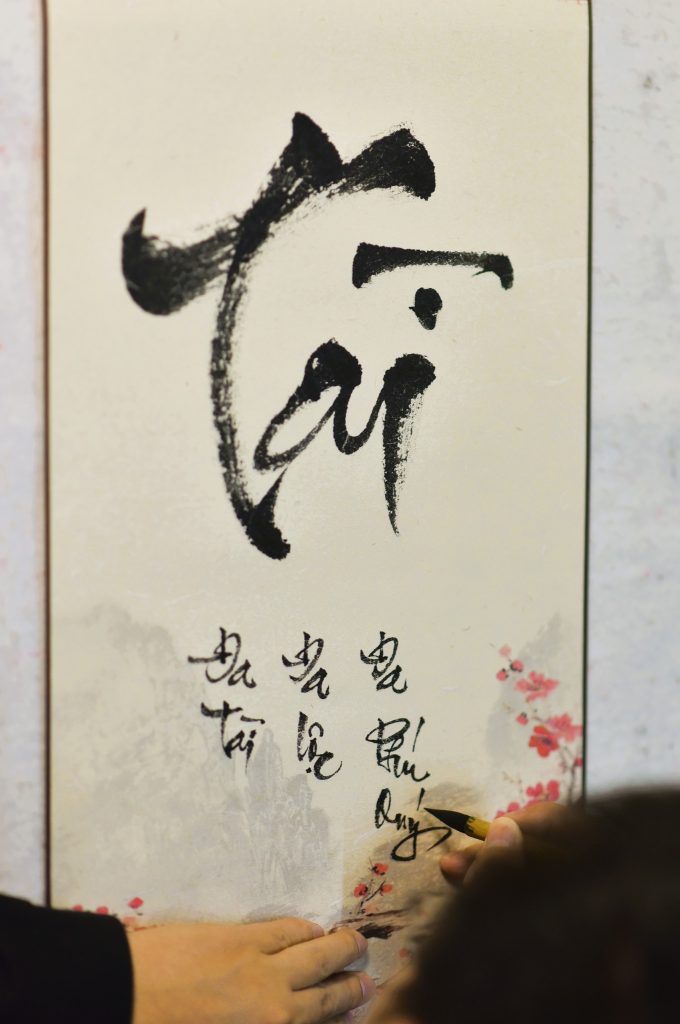 Tài
Đa
tài
Đa
lộc
Đa
Phú
Quý